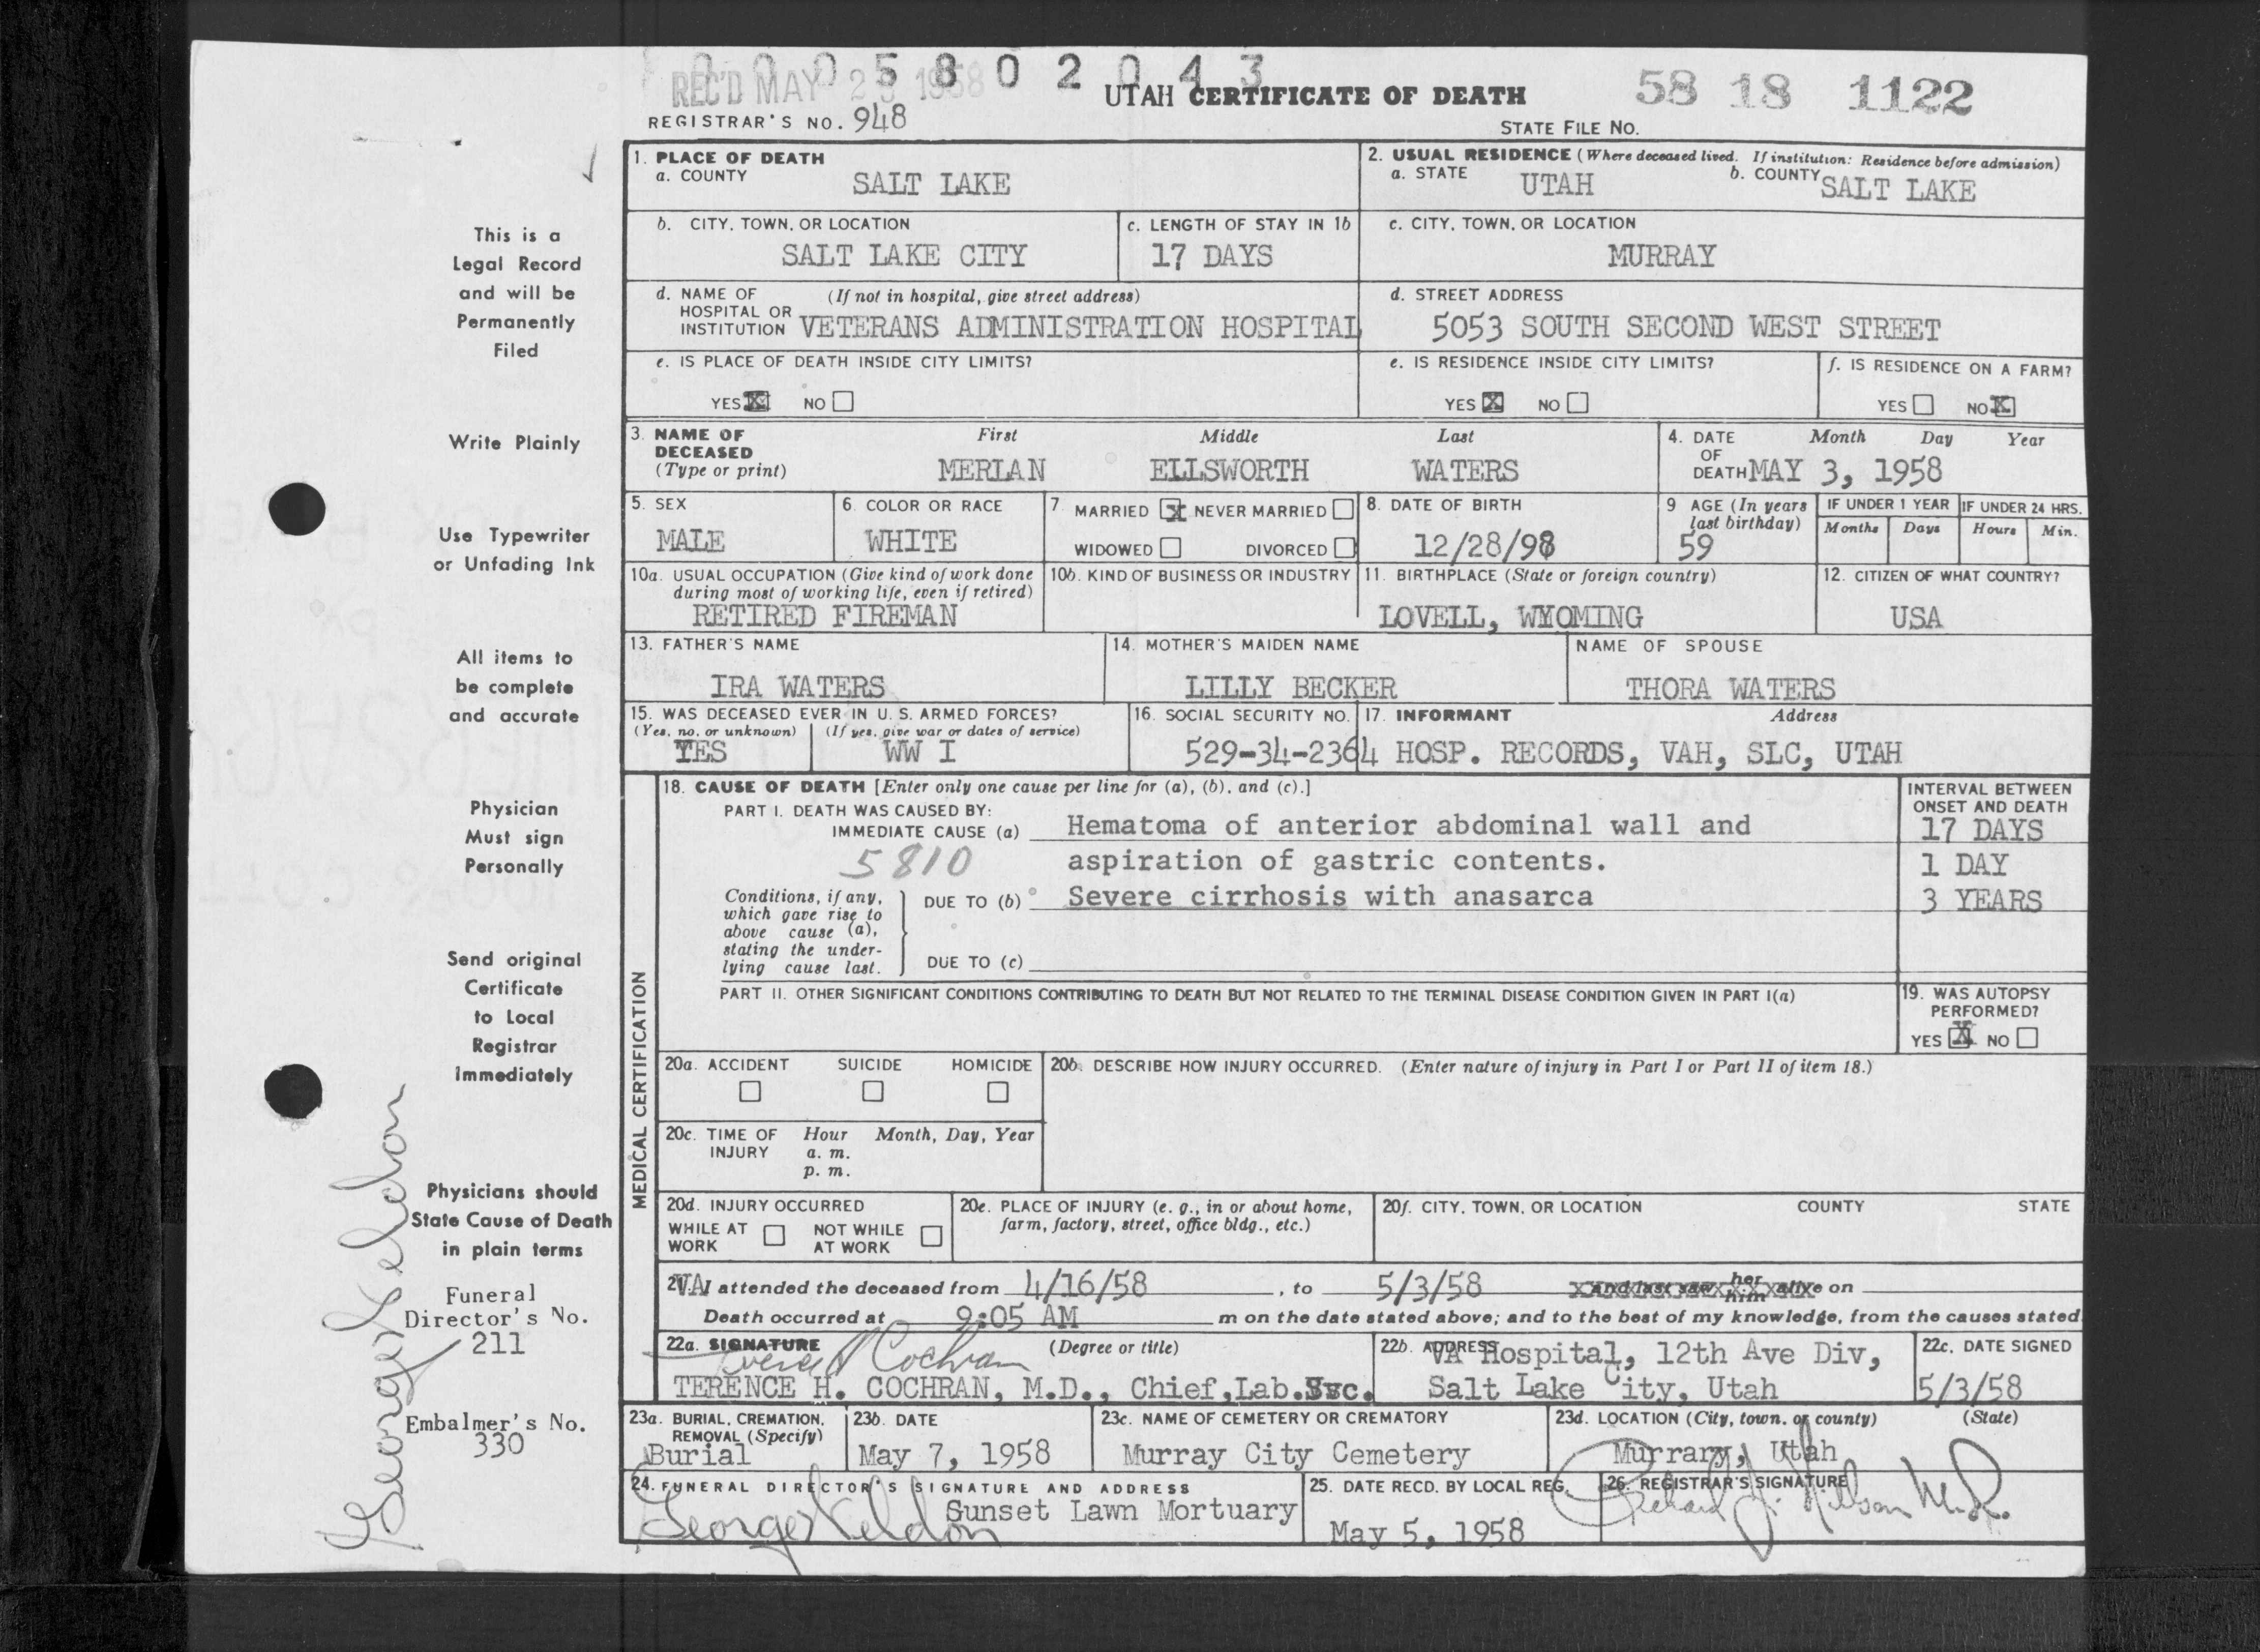 0005802043
REC'D MAY 1958
UTAH CERTIFICATE OF DEATH
58 18 1122
REGISTRAR'S NO. 948
STATE FILE NO.
1. PLACE OF DEATH
a. COUNTY
SALT LAKE
2. USUAL RESIDENCE (Where deceased lived. If institution: Residence before admission)
a. STATE UTAH b. COUNTY SALT LAKE
b. CITY, TOWN, OR LOCATION
SALT LAKE CITY
c. LENGTH OF STAY IN 1b
17 DAYS
c. CITY, TOWN, OR LOCATION
MURRAY
d. NAME OF (If not in hospital, give street address)
HOSPITAL OR
INSTITUTION VETERANS ADMINISTRATION HOSPITAL
d. STREET ADDRESS
5053 SOUTH SECOND WEST STREET
e. IS PLACE OF DEATH INSIDE CITY LIMITS?
YES X NO
e. IS RESIDENCE INSIDE CITY LIMITS?
YES X NO
f. IS RESIDENCE ON A FARM?
YES NO X
3. NAME OF First Middle Last
DECEASED
(Type or print) MERLAN ELLSWORTH WATERS
4. DATE Month Day Year
OF
DEATH MAY 3, 1958
5. SEX
MALE
6. COLOR OR RACE
WHITE
7. MARRIED X NEVER MARRIED
WIDOWED DIVORCED
8. DATE OF BIRTH
12/28/98
9 AGE (In years
last birthday)
59
IF UNDER 1 YEAR
Months Days
IF UNDER 24 HRS.
Hours Min.
10a. USUAL OCCUPATION (Give kind of work done
during most of working life, even if retired)
RETIRED FIREMAN
10b. KIND OF BUSINESS OR INDUSTRY
11. BIRTHPLACE (State or foreign country)
LOVELL, WYOMING
12. CITIZEN OF WHAT COUNTRY?
USA
13. FATHER'S NAME
IRA WATERS
14. MOTHER'S MAIDEN NAME
LILLY BECKER
NAME OF SPOUSE
THORA WATERS
15. WAS DECEASED EVER IN U. S. ARMED FORCES?
(Yes, no, or unknown) (If yes, give war or dates of service)
YES WW I
16. SOCIAL SECURITY NO.
529-34-2364
17. INFORMANT Address
HOSP. RECORDS, VAH, SLC, UTAH
MEDICAL CERTIFICATION
18. CAUSE OF DEATH [Enter only one cause per line for (a), (b), and (c).]
PART I. DEATH WAS CAUSED BY:
IMMEDIATE CAUSE (a) Hematoma of anterior abdominal wall and
5810 aspiration of gastric contents.
Conditions, if any,
which gave rise to
above cause (a),
stating the under-
lying cause last.
DUE TO (b) Severe cirrhosis with anasarca
DUE TO (c)
INTERVAL BETWEEN
ONSET AND DEATH
17 DAYS
1 DAY
3 YEARS
PART II. OTHER SIGNIFICANT CONDITIONS CONTRIBUTING TO DEATH BUT NOT RELATED TO THE TERMINAL DISEASE CONDITION GIVEN IN PART I(a)
19. WAS AUTOPSY
PERFORMED?
YES X NO
20a. ACCIDENT SUICIDE HOMICIDE
20b. DESCRIBE HOW INJURY OCCURRED. (Enter nature of injury in Part I or Part II of item 18.)
20c. TIME OF Hour Month, Day, Year
INJURY a. m.
p. m.
20d. INJURY OCCURRED
WHILE AT NOT WHILE
WORK AT WORK
20e. PLACE OF INJURY (e. g., in or about home,
farm, factory, street, office bldg., etc.)
20f. CITY, TOWN, OR LOCATION COUNTY STATE
21. VA I attended the deceased from 4/16/58, to 5/3/58 and last saw her him alive on
Death occurred at 9:05 AM m on the date stated above; and to the best of my knowledge, from the causes stated
22a. SIGNATURE (Degree or title)
Cochran
TERENCE H. COCHRAN, M.D., Chief,Lab.Svc.
22b. ADDRESS
VA Hospital, 12th Ave Div,
Salt Lake City, Utah
22c. DATE SIGNED
5/3/58
23a. BURIAL, CREMATION,
REMOVAL (Specify)
Burial
23b. DATE
May 7, 1958
23c. NAME OF CEMETERY OR CREMATORY
Murray City Cemetery
23d. LOCATION (City, town, or county) (State)
Murrary, Utah
24. FUNERAL DIRECTOR'S SIGNATURE AND ADDRESS
Sunset Lawn Mortuary
George Keldon
25. DATE RECD. BY LOCAL REG.
May 5, 1958
26. REGISTRAR'S SIGNATURE
This is a
Legal Record
and will be
Permanently
Filed
Write Plainly
Use Typewriter
or Unfading Ink
All items to
be complete
and accurate
Physician
Must sign
Personally
Send original
Certificate
to Local
Registrar
immediately
Physicians should
State Cause of Death
in plain terms
Funeral
Director's No.
211
Embalmer's No.
330
George Keldon